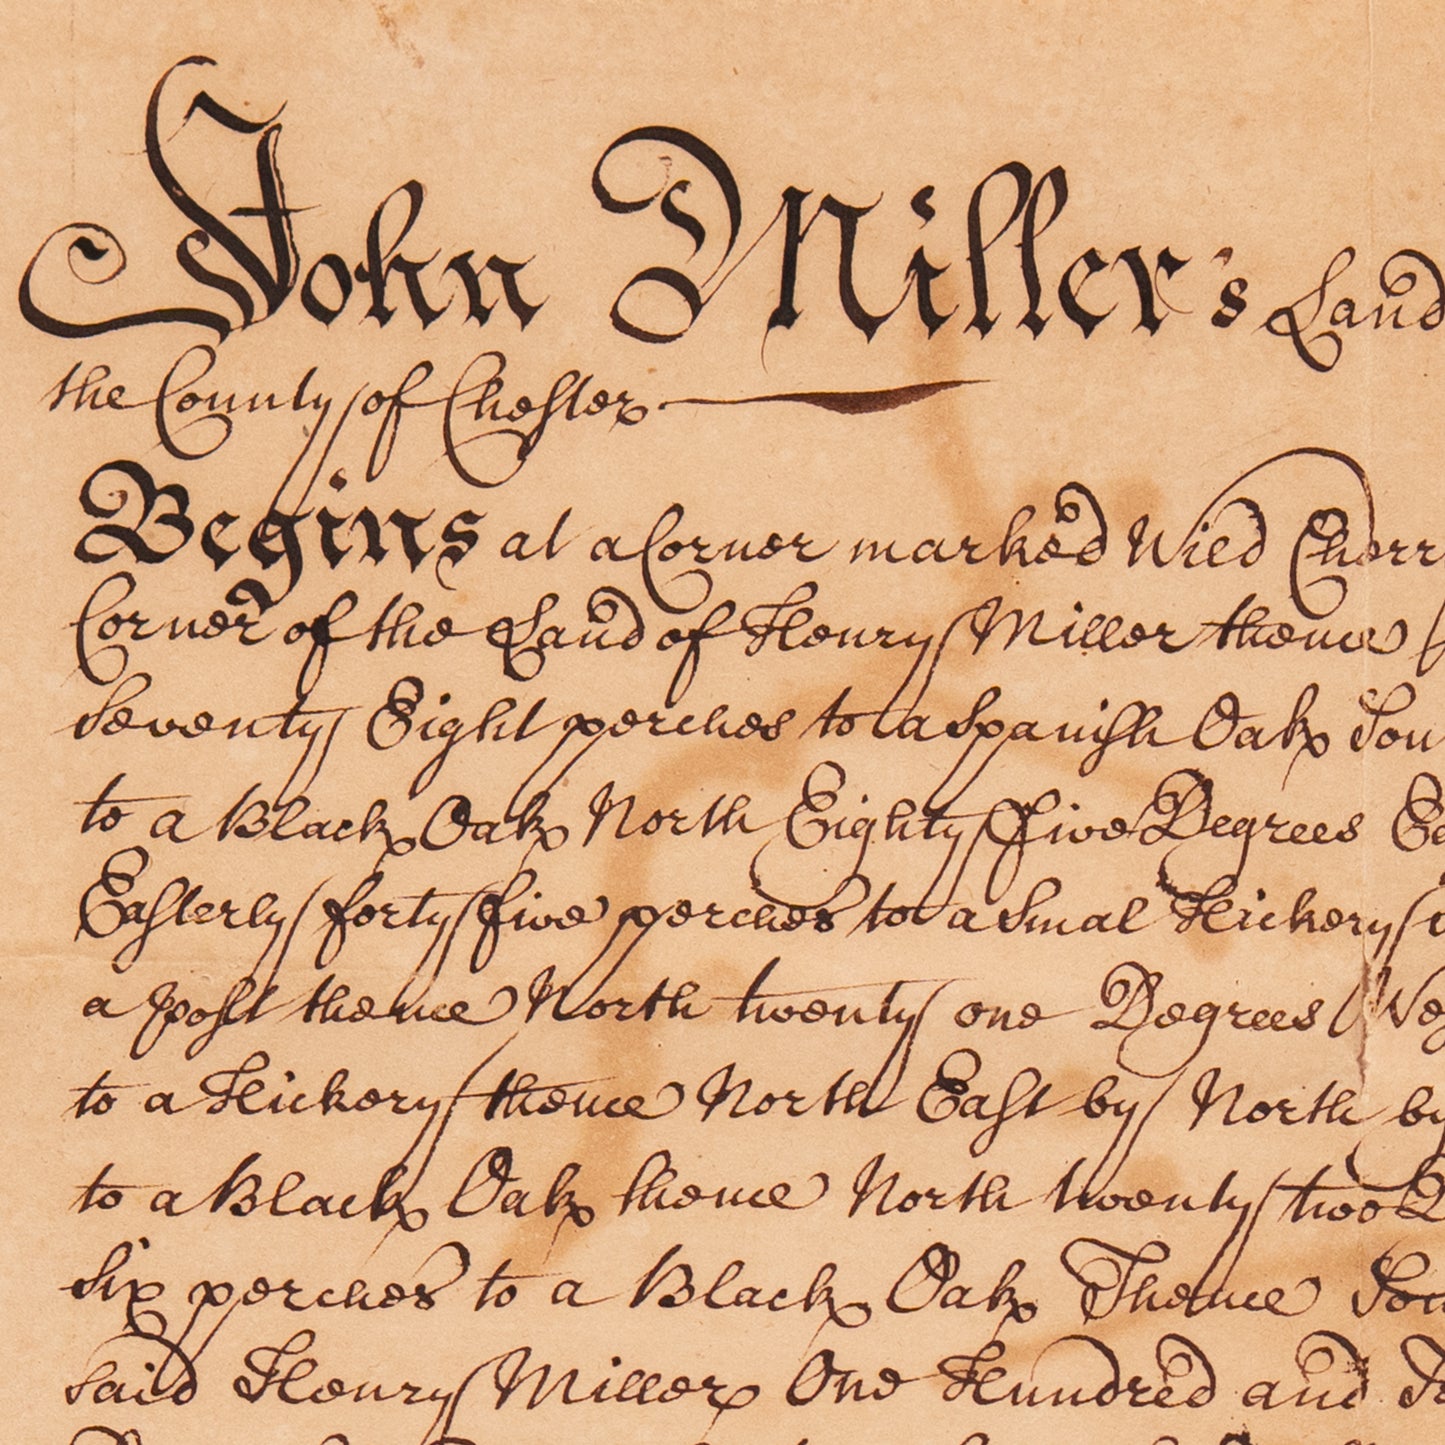 John Miller's Land
the County of Chester
Begins at a Corner marked Wild Cherr
Corner of the Land of Henry Miller thence
Seventy Eight perches to a Spanish Oak Sou
to a Black Oak North Eighty ffive Degrees Ea
Easterly forty ffive perches to a Smal Hickery
a post thence North twenty one Degrees Wes
to a Hickery thence North East by North by
to a Black Oak thence North twenty two D
Six perches to a Black Oak Thence Sou
said Henry Miller One Hundred and